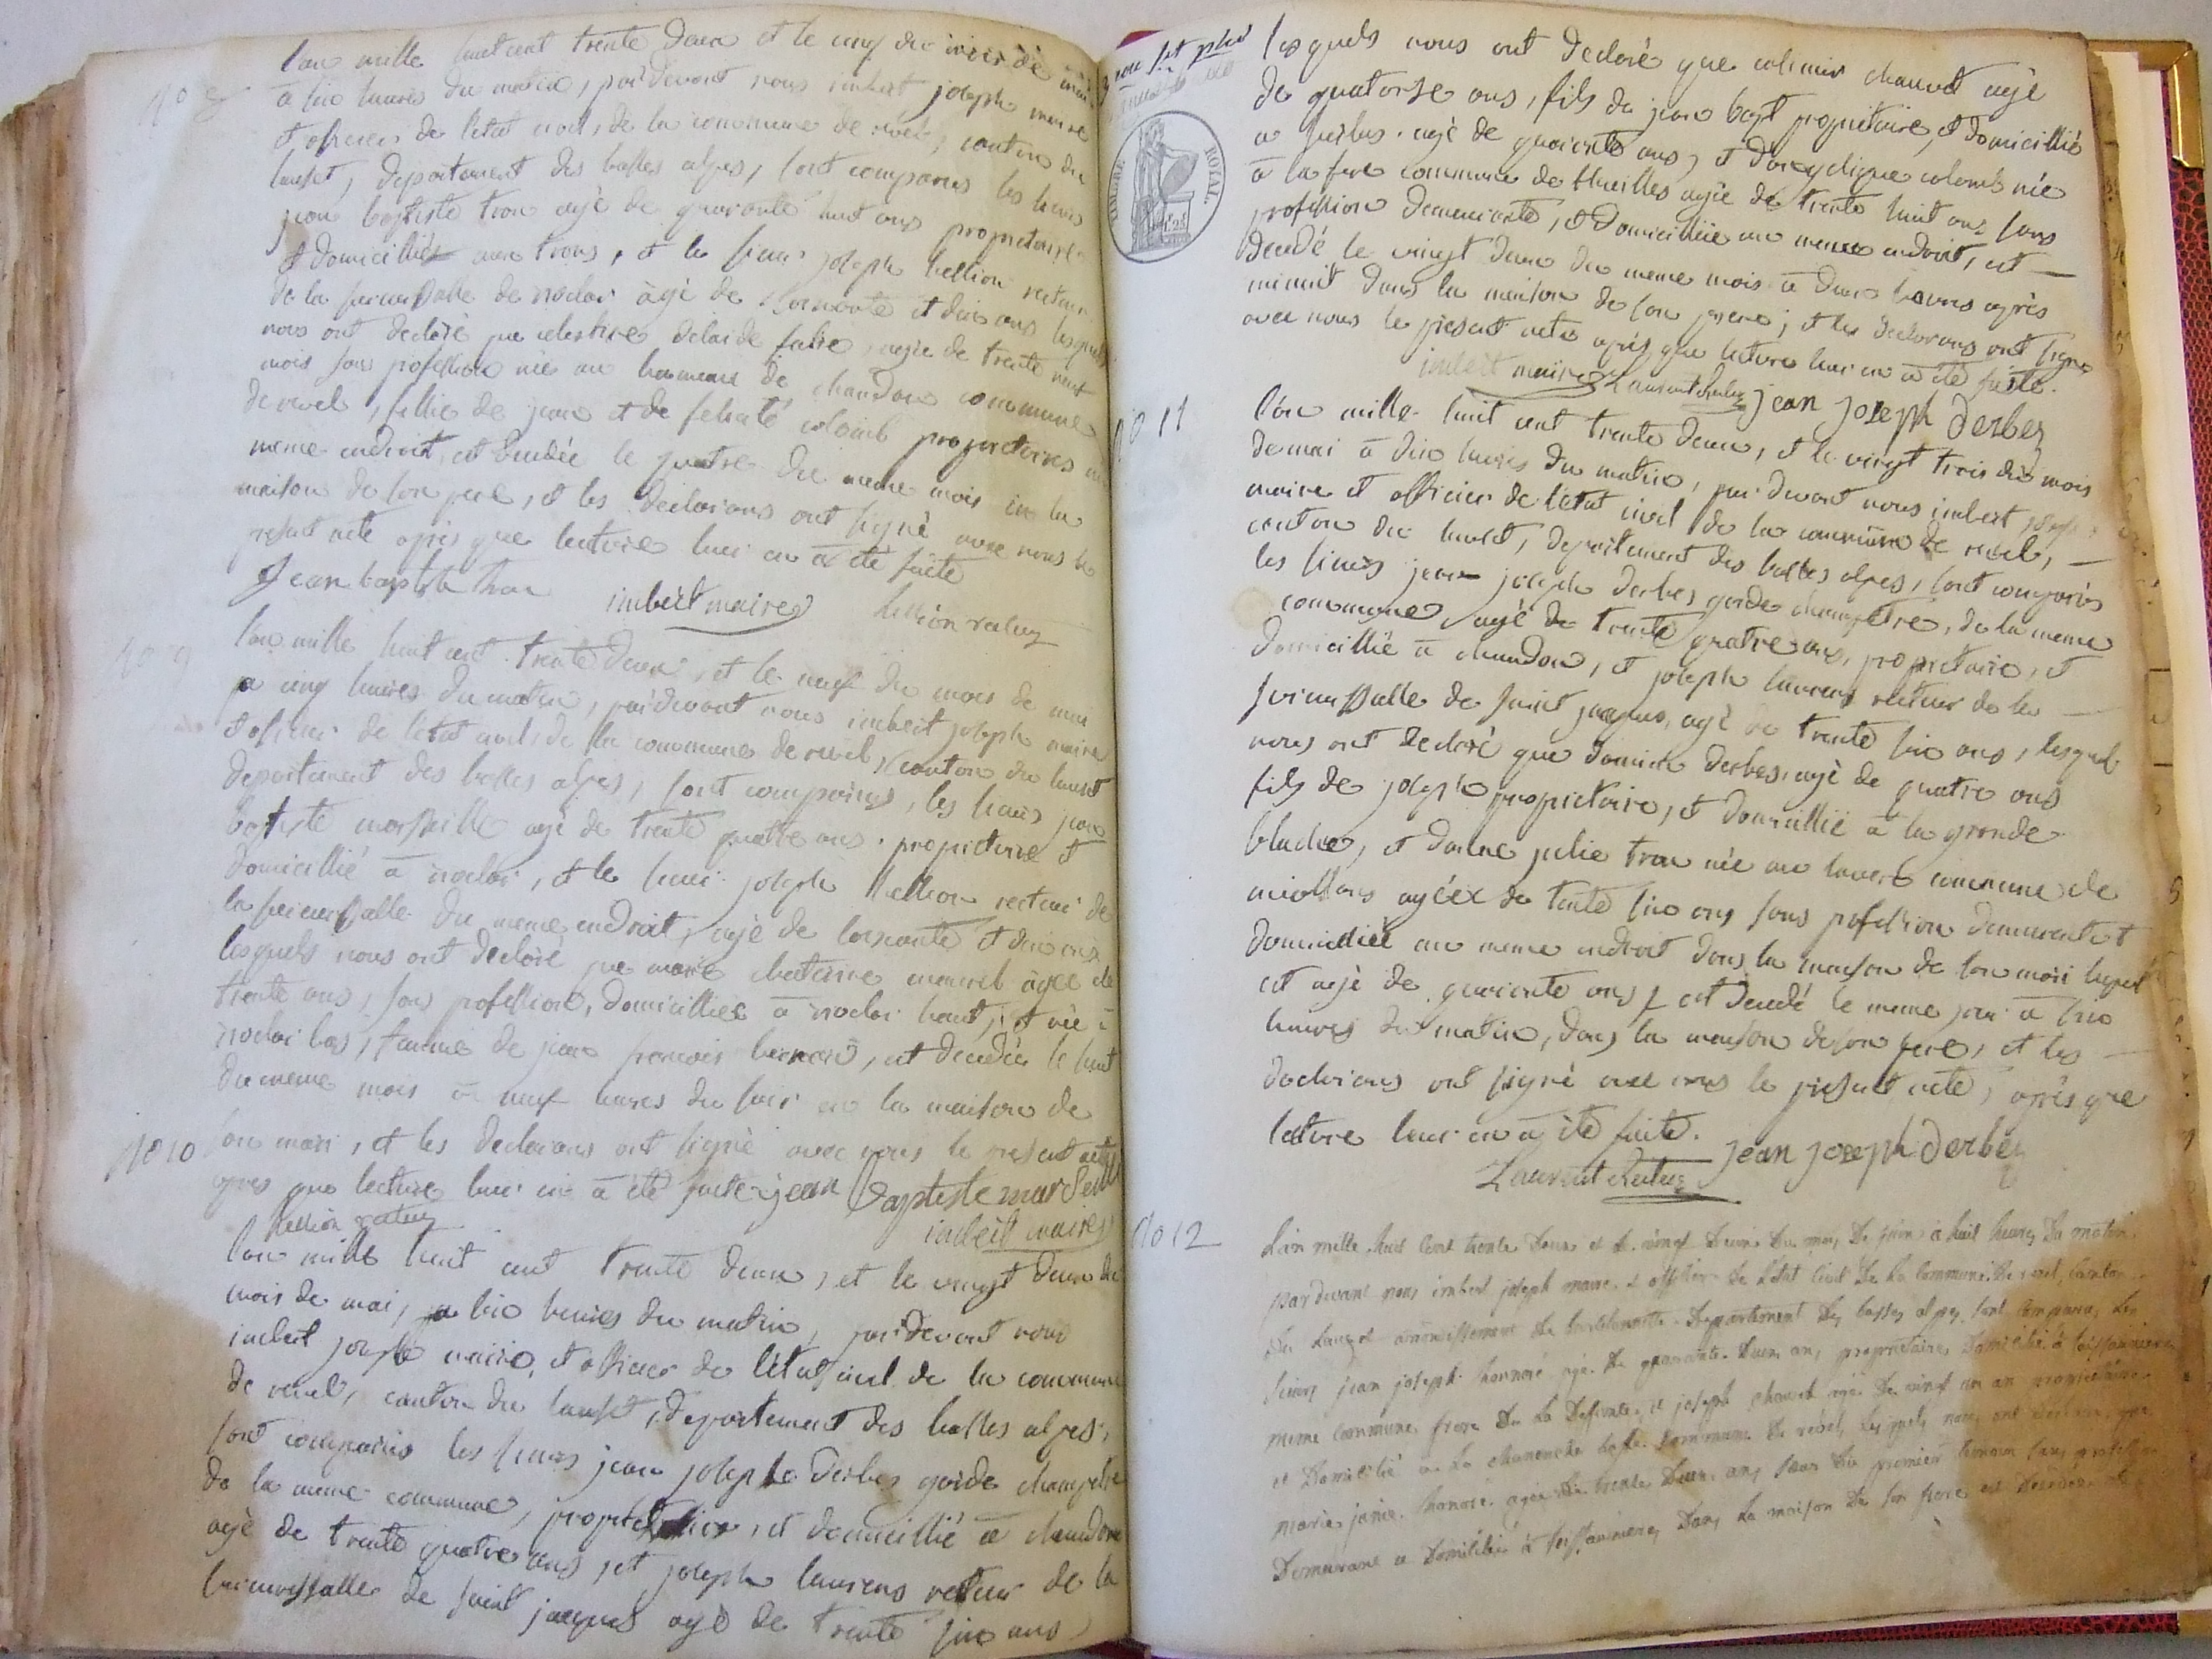 no 8
l'an mille huit cent trente deux et le cinq du mois de mai
à six heures du matin, par devant nous imbert joseph maire
et officier de l'état civil, de la commune de revel, canton du
lauset, departement des basses alpes, sont comparus les sieurs
jean baptiste tron agé de quarante huit ans propriétaire
et domicilliés aux trons, et le sieur joseph hellion recteur
de la succursalle de rioclar àgé de soixante et dix ans lesquels
nous ont declaré que celestine fabre, agée de trente neuf
mois sans profession née au hameau de chandon commune
de revel, fillie de jean et de felicité colomb propriétaires au
meme endroit, est decedée le quatre du meme mois en la
maison de son pere, et les declarans ont signé avec nous le
présent acte après que lecture leur en a été faite
Jean baptiste tron imbert maire hellion recteur
no 9
l'an mille huit cent trente deux, et le neuf du mois de mai
a cinq heures du matin, par devant nous imbert joseph maire
et officier de l'état civil, de la commune de revel, canton du lauset
departement des basses alpes, sont comparus, les sieurs jean
baptiste marseille agé de trente quatre ans. propriétaire et
domicillié à rioclar, et le sieur joseph hellion recteur de
la succursalle du meme endroit, agé de soixante et dix ans
lesquels nous ont declaré que marie chaterine maurel àgée de
trente ans, sans profession, domicilliée à rioclar haut, et née à
rioclar bas, famme de jean francois, est decedée le huit
du meme mois à neuf heures du soir en la maison de
son mari, et les declarans ont signé avec nous le présent acte
apres que lecture leur en a été faite jean Baptiste marseille
hellion recteur imbert maire
no 10
l'an mille huit cent trente deux, et le vingt deux du
mois de mai, a six heures du matin, par devant nous
imbert joseph maire, et officier de l'état civil de la commune
de revel, canton du lauset, departement des basses alpes,
sont comparus les sieurs jean joseph derbes garde champetre
de la meme commune, propriétaire, et domicillié a chandon
agé de trente quatre ans, et joseph laurens recteur de la
succursalle de saint jacques agé de trente six ans,
lesquels nous ont declaré que chauvet agé
de quatorse ans, fils de jean bapt propriétaire, et domicillié
a agé de quarante ans, et colomb née
à la commune de agée de trente huit ans, sans
profession demeurante, et domicilliée au meme endroit, est
decedé le vingt deux du meme mois à deux heures après
minuit dans la maison de son père; et les declarans ont signé
avec nous le présent acte après que lecture leur en a été faite.
imbert maire Laurent Recteur jean joseph derbes
TIMBRE ROYAL
no 11
l'an mille huit cent trente deux, et le vingt trois du mois
de mai à dix heures du matin, par devant nous imbert joseph
maire et officier de l'état civil de la commune de revel,
canton du lauset, departement des basses alpes, sont comparus
les sieurs jean joseph derbes garde champetre, de la meme
commune agé de trente quatre ans, propriétaire, et
domicillié à chandon, et joseph laurens recteur de la
succursalle de saint jacques, agé de trente six ans, lesquels
nous ont declaré que derbes, agé de quatre ans
fils de joseph propriétaire, et domicillié à la grande
blache, et julie tron née au lavers commune de
meollans agéee de trente six ans sans profession demeurante et
domicilliée au meme endroit dans la maison de son mari lequel
est agé de quarante ans, est decedé le meme jour à six
heures du matin, dans la maison de son pere, et les
declarans ont signé avec nous le présent acte, après que
lecture leur en a été faite.
Laurent Recteur jean joseph derbes
no 12
L'an mille huit cent trente deux et le vingt deux du mois de juin à huit heures du matin
pardevant nous imbert joseph maire et officier de l'état civil de la commune de revel, canton
du lauzet arrondissement de barcelonnette departement des basses alpes, sont comparus les
sieurs jean joseph honnoré agé de quarante deux ans propriétaire domicilié à
meme commune frere de la defunte, et joseph chauvet agé de vingt un an propriétaire
et domicilié a la chanenche basse commune de revel, lesquels nous ont declaré que
marie honoré agée de trente deux ans soeur du premier temoin sans profession
demeurant et domiciliée à dans la maison de son frere est decedée